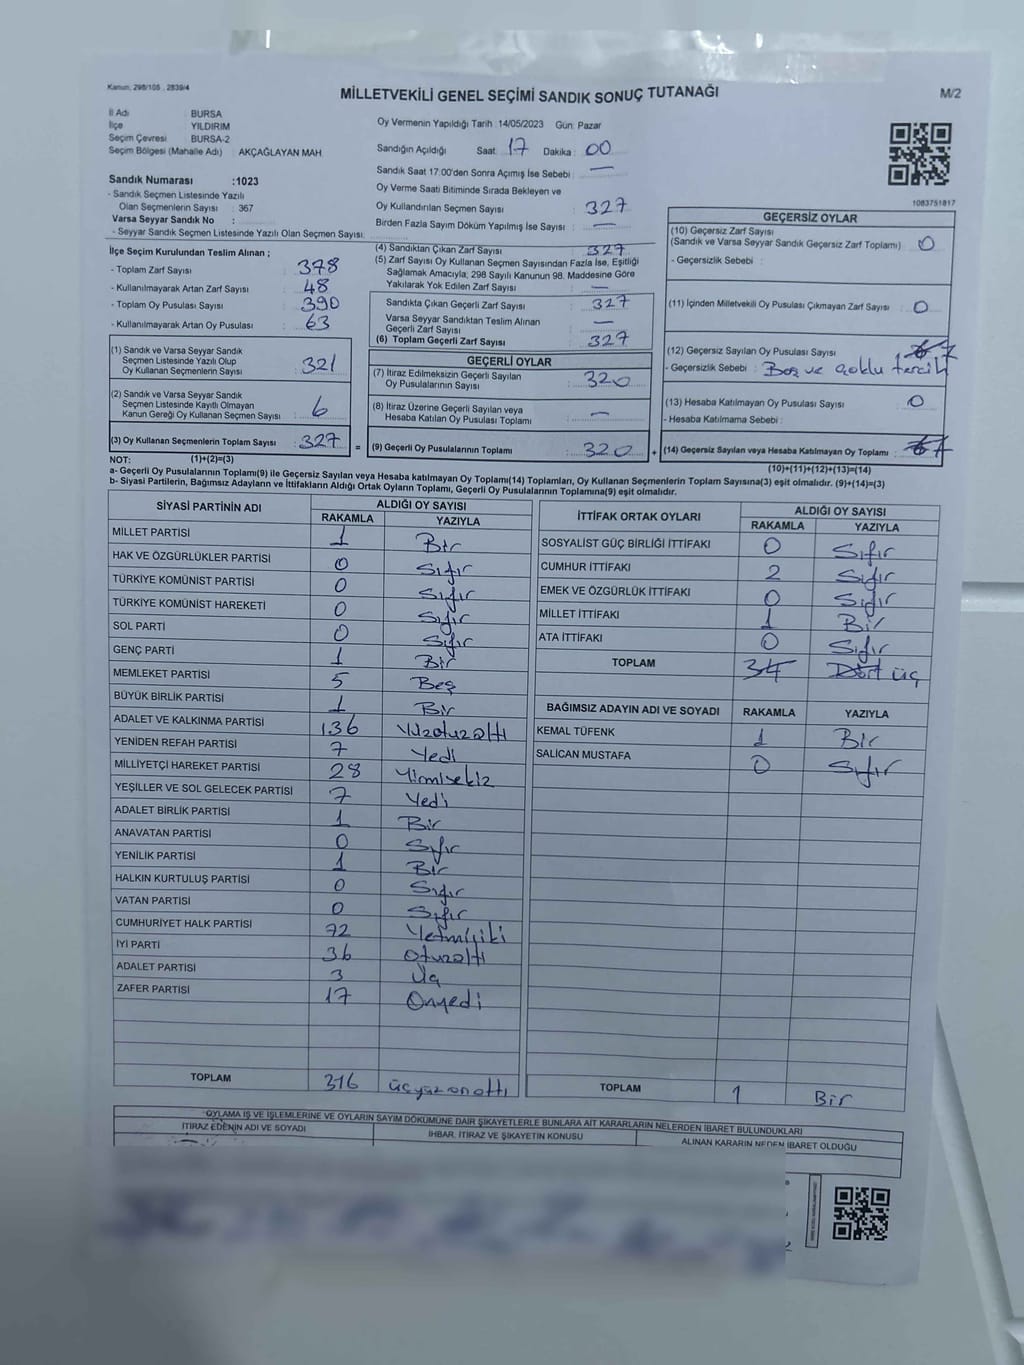 Kanun; 298/105 , 2839/4
MİLLETVEKİLİ GENEL SEÇİMİ SANDIK SONUÇ TUTANAĞI
M/2
İl Adı : BURSA
İlçe : YILDIRIM
Seçim Çevresi : BURSA-2
Seçim Bölgesi (Mahalle Adı) : AKÇAĞLAYAN MAH.
Oy Vermenin Yapıldığı Tarih :14/05/2023 Gün: Pazar
Sandığın Açıldığı Saat: 17 Dakika : 00
Sandık Saat 17.00'den Sonra Açımış İse Sebebi : —
Oy Verme Saati Bitiminde Sırada Bekleyen ve
Oy Kullandırılan Seçmen Sayısı : 327
Birden Fazla Sayım Döküm Yapılmış İse Sayısı : —
Sandık Numarası :1023
- Sandık Seçmen Listesinde Yazılı
Olan Seçmenlerin Sayısı : 367
Varsa Seyyar Sandık No :
- Seyyar Sandık Seçmen Listesinde Yazılı Olan Seçmen Sayısı:
1083751817
İlçe Seçim Kurulundan Teslim Alınan ;
- Toplam Zarf Sayısı : 378
- Kullanılmayarak Artan Zarf Sayısı : 48
- Toplam Oy Pusulası Sayısı : 390
- Kullanılmayarak Artan Oy Pusulası : 63
(1) Sandık ve Varsa Seyyar Sandık
Seçmen Listesinde Yazılı Olup
Oy Kullanan Seçmenlerin Sayısı : 321
(2) Sandık ve Varsa Seyyar Sandık
Seçmen Listesinde Kayıtlı Olmayan
Kanun Gereği Oy Kullanan Seçmen Sayısı : 6
(3) Oy Kullanan Seçmenlerin Toplam Sayısı : 327
(4) Sandıktan Çıkan Zarf Sayısı : 327
(5) Zarf Sayısı Oy Kullanan Seçmen Sayısından Fazla İse, Eşitliği
Sağlamak Amacıyla; 298 Sayılı Kanunun 98. Maddesine Göre
Yakılarak Yok Edilen Zarf Sayısı : —
Sandıkta Çıkan Geçerli Zarf Sayısı : 327
Varsa Seyyar Sandıktan Teslim Alınan
Geçerli Zarf Sayısı : —
(6) Toplam Geçerli Zarf Sayısı : 327
GEÇERLİ OYLAR
(7) İtiraz Edilmeksizin Geçerli Sayılan
Oy Pusulalarının Sayısı : 320
(8) İtiraz Üzerine Geçerli Sayılan veya
Hesaba Katılan Oy Pusulaları Toplamı : —
= (9) Geçerli Oy Pusulalarının Toplamı : 320 +
GEÇERSİZ OYLAR
(10) Geçersiz Zarf Sayısı
(Sandık ve Varsa Seyyar Sandık Geçersiz Zarf Toplamı) : 0
- Geçersizlik Sebebi :
(11) İçinden Milletvekili Oy Pusulası Çıkmayan Zarf Sayısı : 0
(12) Geçersiz Sayılan Oy Pusulası Sayısı : 7
- Geçersizlik Sebebi : Boş ve çoklu tercih
(13) Hesaba Katılmayan Oy Pusulası Sayısı : 0
- Hesaba Katılmama Sebebi :
(14) Geçersiz Sayılan veya Hesaba Katılmayan Oy Toplamı : 7
NOT: (1)+(2)=(3)
(10)+(11)+(12)+(13)=(14)
a- Geçerli Oy Pusulalarının Toplamı(9) ile Geçersiz Sayılan veya Hesaba katılmayan Oy Toplamı(14) Toplamları, Oy Kullanan Seçmenlerin Toplam Sayısına(3) eşit olmalıdır. (9)+(14)=(3)
b- Siyasi Partilerin, Bağımsız Adayların ve İttifakların Aldığı Ortak Oyların Toplamı, Geçerli Oy Pusulalarının Toplamına(9) eşit olmalıdır.
SİYASİ PARTİNİN ADI ALDIĞI OY SAYISI
RAKAMLA YAZIYLA
MİLLET PARTİSİ 1 Bir
HAK VE ÖZGÜRLÜKLER PARTİSİ 0 Sıfır
TÜRKİYE KOMÜNİST PARTİSİ 0 Sıfır
TÜRKİYE KOMÜNİST HAREKETİ 0 Sıfır
SOL PARTİ 0 Sıfır
GENÇ PARTİ 1 Bir
MEMLEKET PARTİSİ 5 Beş
BÜYÜK BİRLİK PARTİSİ 1 Bir
ADALET VE KALKINMA PARTİSİ 136 Yüzotuzaltı
YENİDEN REFAH PARTİSİ 7 Yedi
MİLLİYETÇİ HAREKET PARTİSİ 28 Yirmisekiz
YEŞİLLER VE SOL GELECEK PARTİSİ 7 Yedi
ADALET BİRLİK PARTİSİ 1 Bir
ANAVATAN PARTİSİ 0 Sıfır
YENİLİK PARTİSİ 1 Bir
HALKIN KURTULUŞ PARTİSİ 0 Sıfır
VATAN PARTİSİ 0 Sıfır
CUMHURİYET HALK PARTİSİ 72 Yetmişiki
İYİ PARTİ 36 Otuzaltı
ADALET PARTİSİ 3 Üç
ZAFER PARTİSİ 17 Onyedi
TOPLAM 316 üçyüzonaltı
İTTİFAK ORTAK OYLARI ALDIĞI OY SAYISI
RAKAMLA YAZIYLA
SOSYALİST GÜÇ BİRLİĞİ İTTİFAKI 0 Sıfır
CUMHUR İTTİFAKI 2 Sıfır
EMEK VE ÖZGÜRLÜK İTTİFAKI 0 Sıfır
MİLLET İTTİFAKI 1 Bir
ATA İTTİFAKI 0 Sıfır
TOPLAM 34 Dört üç
BAĞIMSIZ ADAYIN ADI VE SOYADI RAKAMLA YAZIYLA
KEMAL TÜFENK 1 Bir
SALİCAN MUSTAFA 0 Sıfır
TOPLAM 1 Bir
OYLAMA İŞ VE İŞLEMLERİNE VE OYLARIN SAYIM DÖKÜMÜNE DAİR ŞİKAYETLERLE BUNLARA AİT KARARLARIN NELERDEN İBARET BULUNDUKLARI
İTİRAZ EDENİN ADI VE SOYADI İHBAR, İTİRAZ VE ŞİKAYETİN KONUSU ALINAN KARARIN NEDEN İBARET OLDUĞU